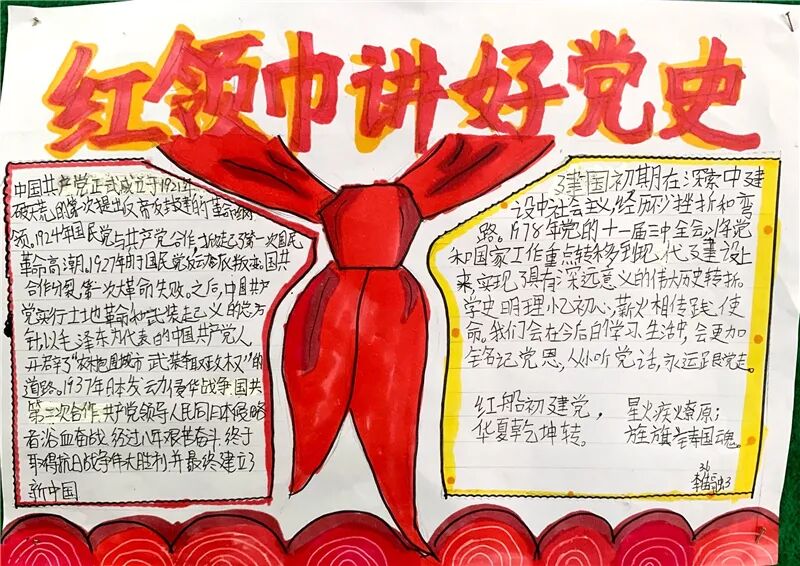 红领巾讲好党史
中国共产党正式成立于1921年
破天荒的第一次提出反帝反封建的革命纲
领。1924年国民党与共产党合作,掀起了第一次国民
革命高潮。1927年由于国民党反动叛变。国共
合作分裂,第一次大革命失败。之后,中国共产
党实行土地革命和武装起义的总方
针,以毛泽东为代表的中国共产党人
开辟了“农村包围城市 武装夺取政权”的
道路。1937年日本发动侵华战争国共
第二次合作,共产党领导人民同日本侵略
者浴血奋战,经过八年艰苦奋斗,终于
取得抗日战争伟大胜利,并最终建立了
新中国
建国初期在探索中建
设中社会主义,经历了挫折和弯
路。1978年党的十一届三中全会,将党
和国家工作重点转移到现代建设上
来,实现了具有深远意义的伟大历史转折。
学史明理忆初心,薪火相传践使
命。我们会在今后的学习生活中,会更加
铭记党恩,从小听党话,永远跟党走。
红船初建党, 星火疾燎原;
华夏乾坤转。 旌旗铸国魂。
36